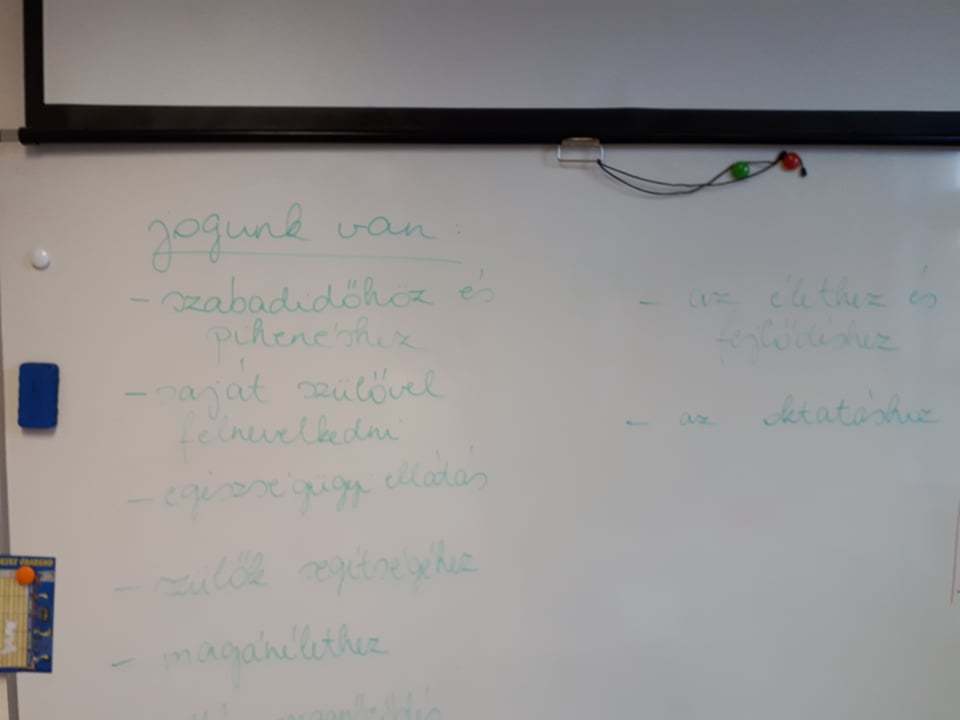 jogunk van:
- szabadidőhöz és
pihenéshez
- saját szülővel
felnevelkedni
- egészségügyi elládás
- szülők segítségéhez
- magánélethez
- az élethez és
fejlődéshez
- az oktatáshoz